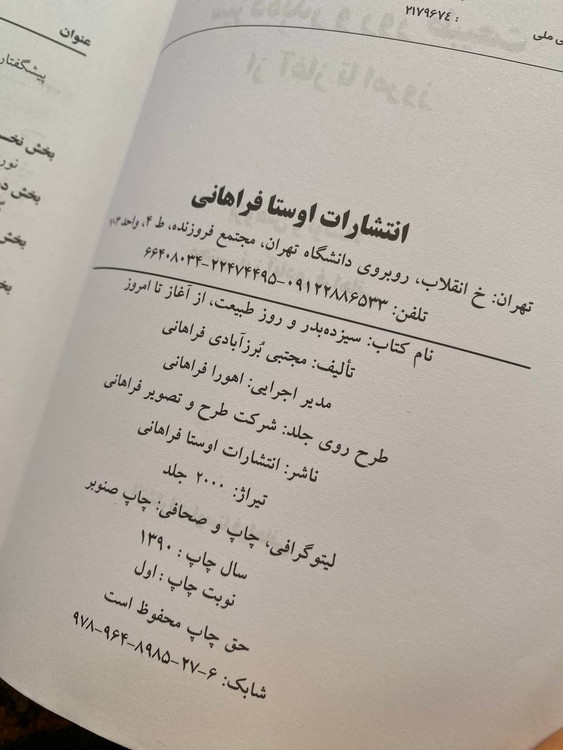 ی ملی
: ۲۱۷۹۶۷٤
انتشارات اوستا فراهانی
تهران: خ انقلاب، روبروی دانشگاه تهران، مجتمع فروزنده، ط ۴، واحد ۷۰۳
تلفن: ۰۹۱۲۲۸۸۶۵۳۳-۲۲۴۷۴۴۹۵-۶۶۴۰۸۰۳۴
نام کتاب: سیزده‌بدر و روز طبیعت، از آغاز تا امروز
تألیف: مجتبی بُرزآبادی فراهانی
مدیر اجرایی: اهورا فراهانی
طرح روی جلد: شرکت طرح و تصویر فراهانی
ناشر: انتشارات اوستا فراهانی
تیراژ: ۲۰۰۰ جلد
لیتوگرافی، چاپ و صحافی: چاپ صنوبر
سال چاپ: ۱۳۹۰
نوبت چاپ: اول
حق چاپ محفوظ است
شابک: ۶-۲۷-۸۹۸۵-۹۶۴-۹۷۸
عنوان
پیشگفتار
بخش نخس
نور
بخش د
بخش
بخ